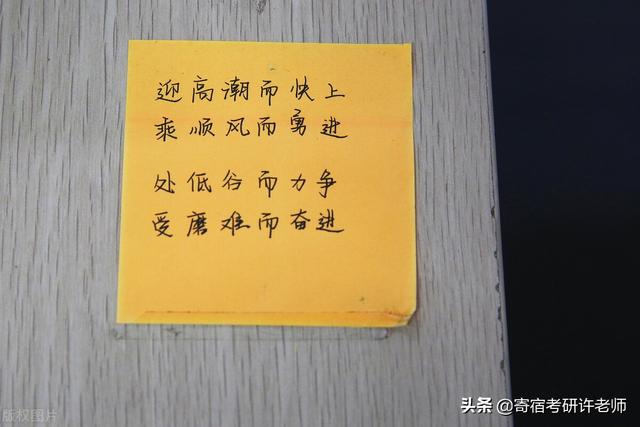 迎高潮而快上
乘顺风而勇进
处低谷而力争
受磨难而奋进
版权图片
头条 @寄宿考研许老师